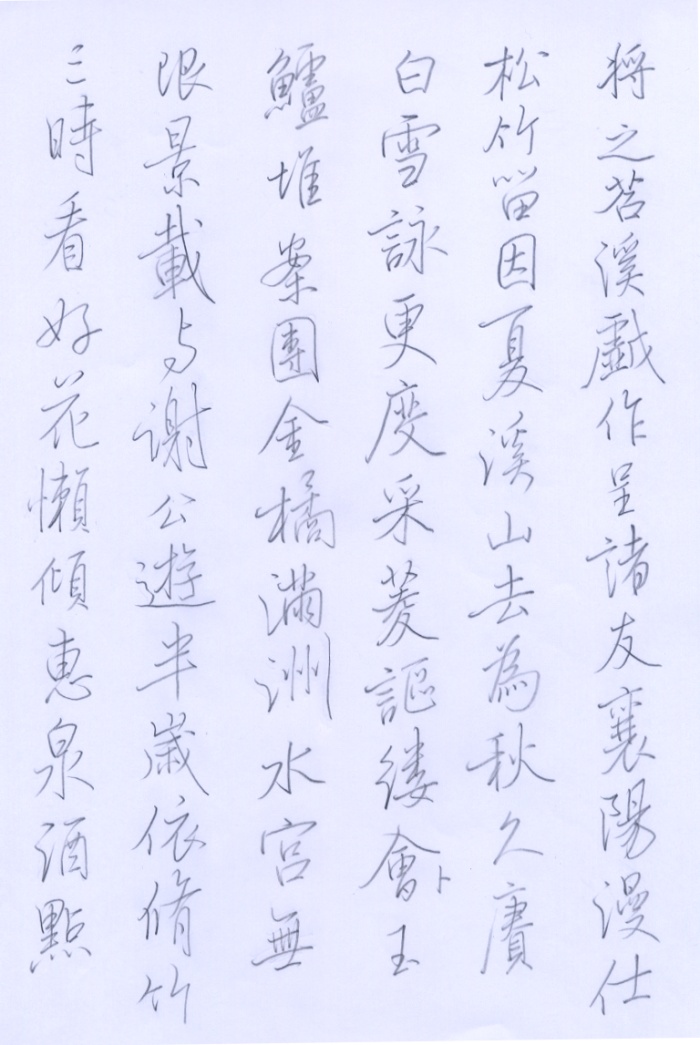 將之苕溪戲作呈諸友襄陽漫仕
松竹留因夏溪山去為秋久賡
白雪詠更度采菱謳縷會卜玉
鱸堆案團金橘滿洲水宮無
限景載与謝公遊半歲依脩竹
三時看好花懶傾惠泉酒點